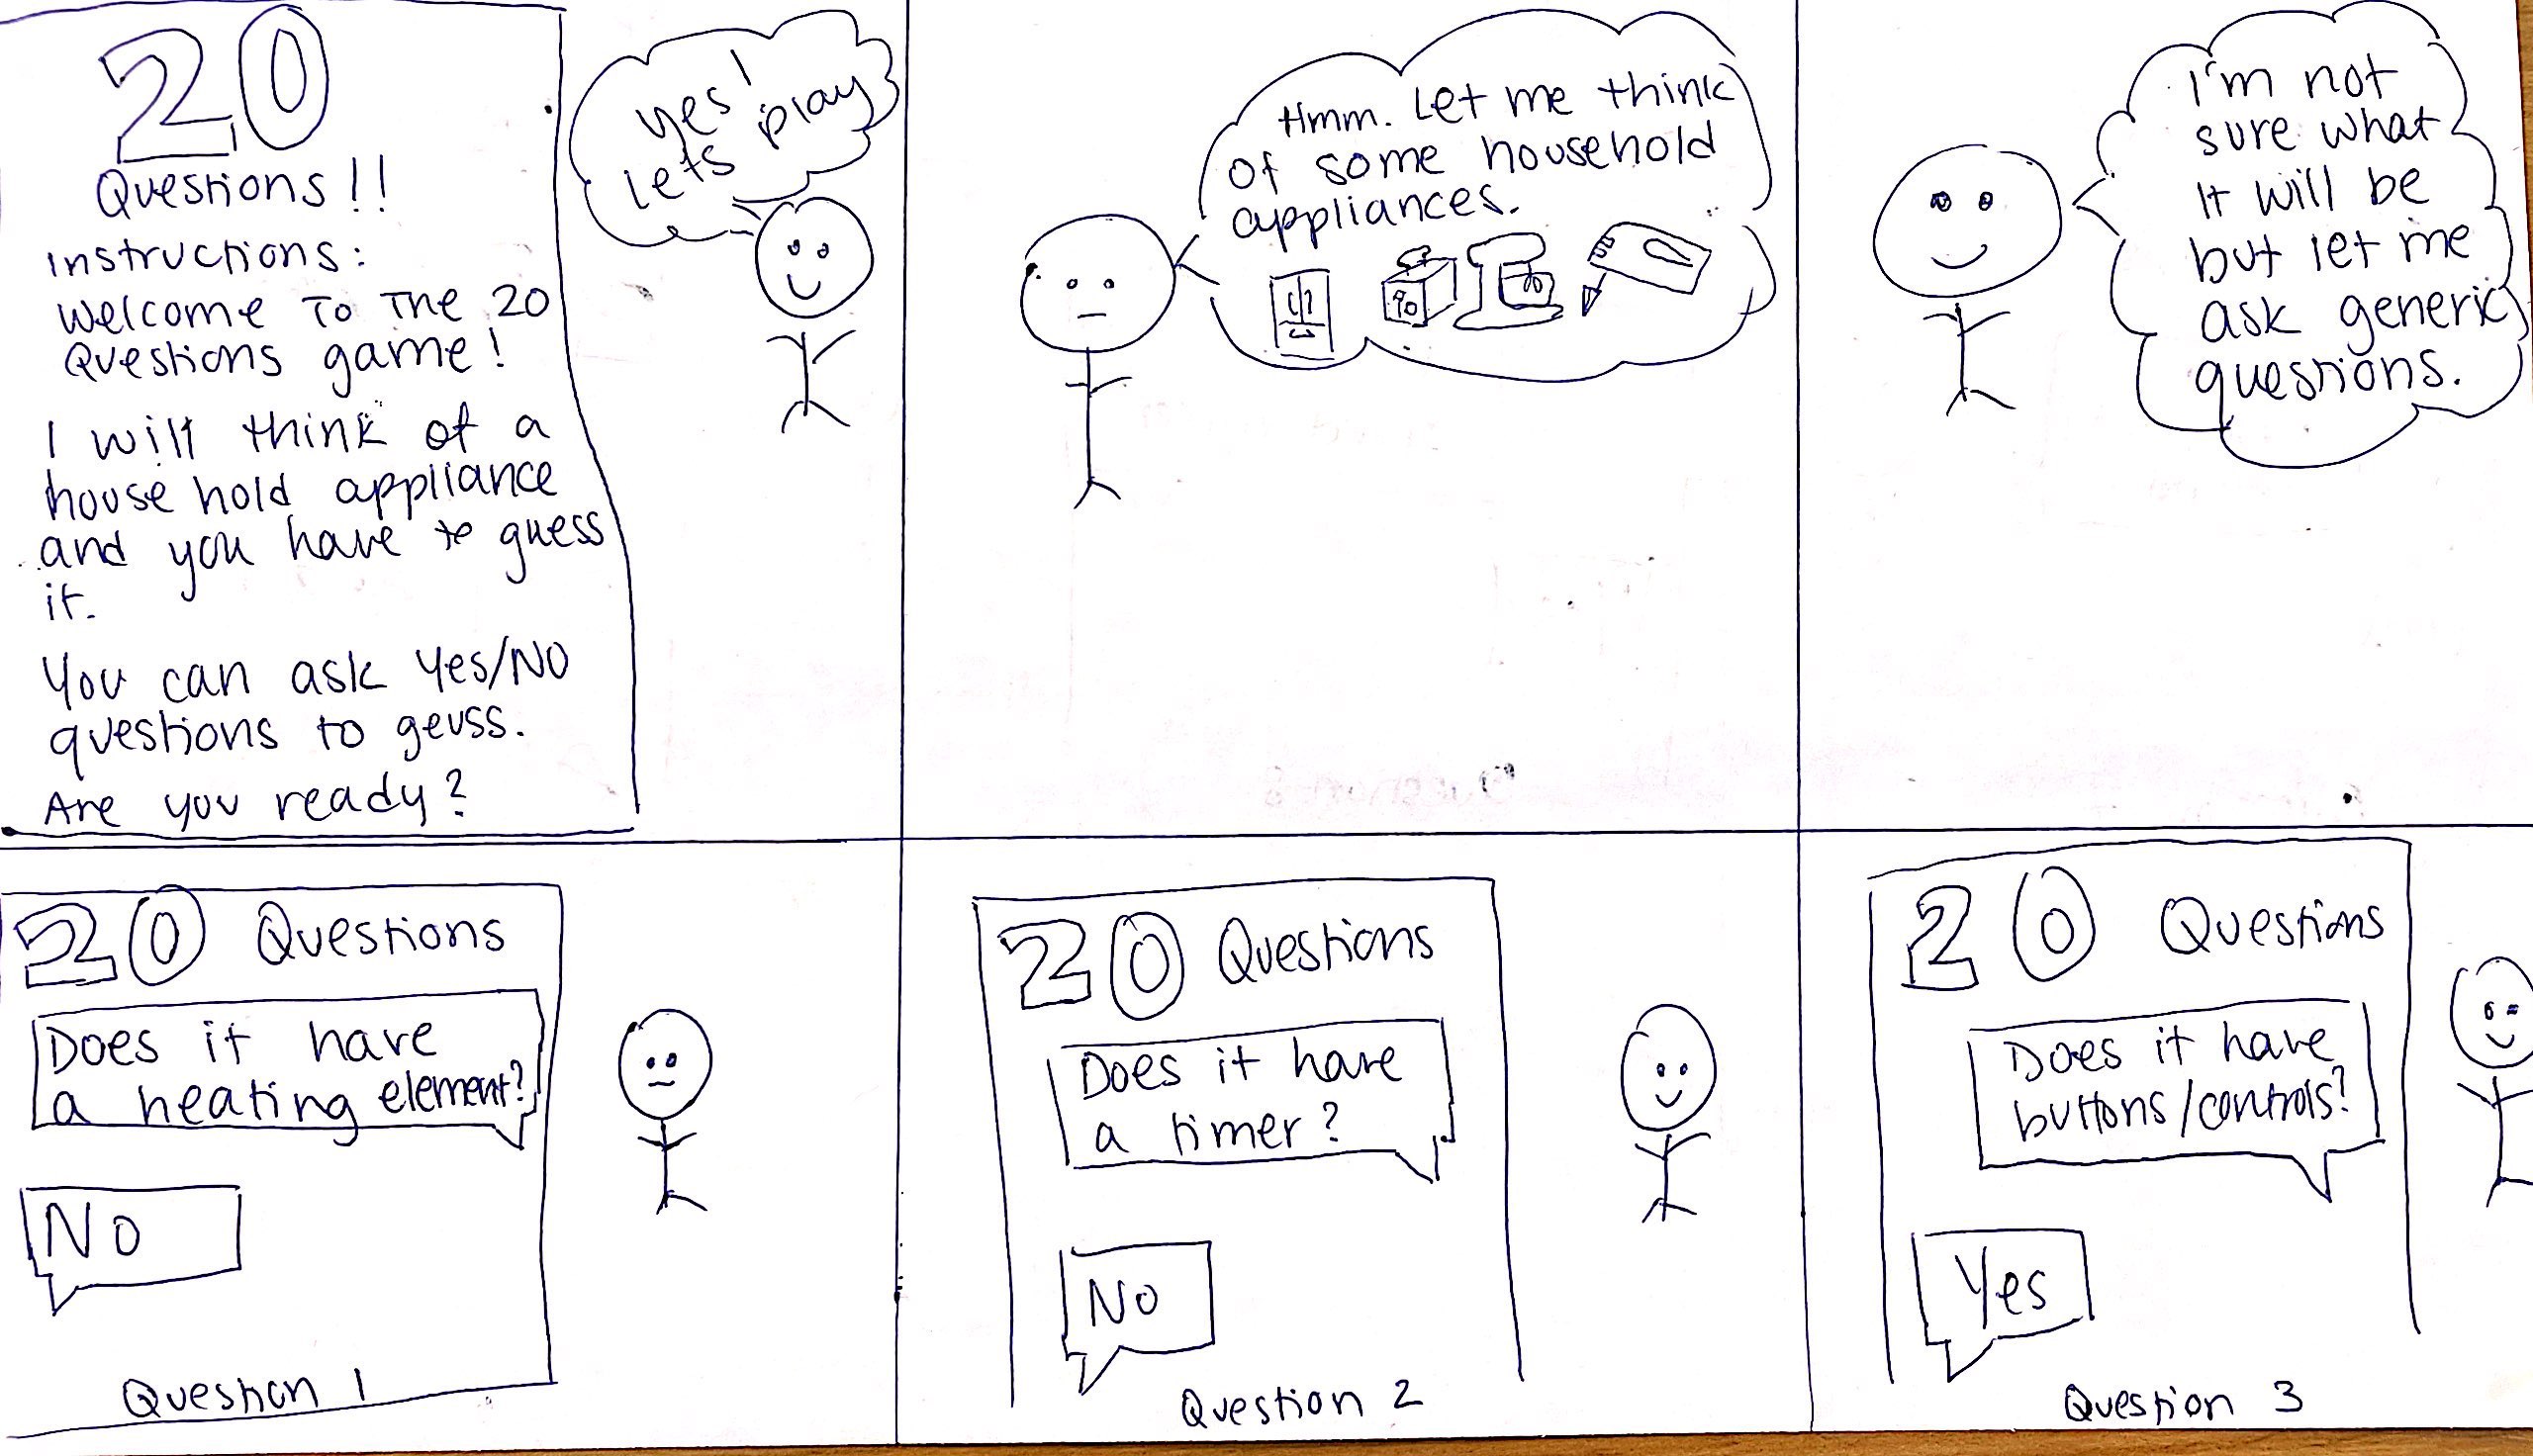 20
Questions!!
Instructions:
Welcome To The 20
Questions game!
I will think of a
house hold appliance
and you have to guess
it.
You can ask Yes/No
questions to geuss.
Are you ready?
yes!
lets play
Hmm. Let me think
of some household
appliances.
I'm not
sure what
it will be
but let me
ask generic
questions.
20 Questions
Does it have
a heating element?
No
Question 1
20 Questions
Does it have
a timer?
No
Question 2
20 Questions
Does it have
buttons/controls?
Yes
Question 3